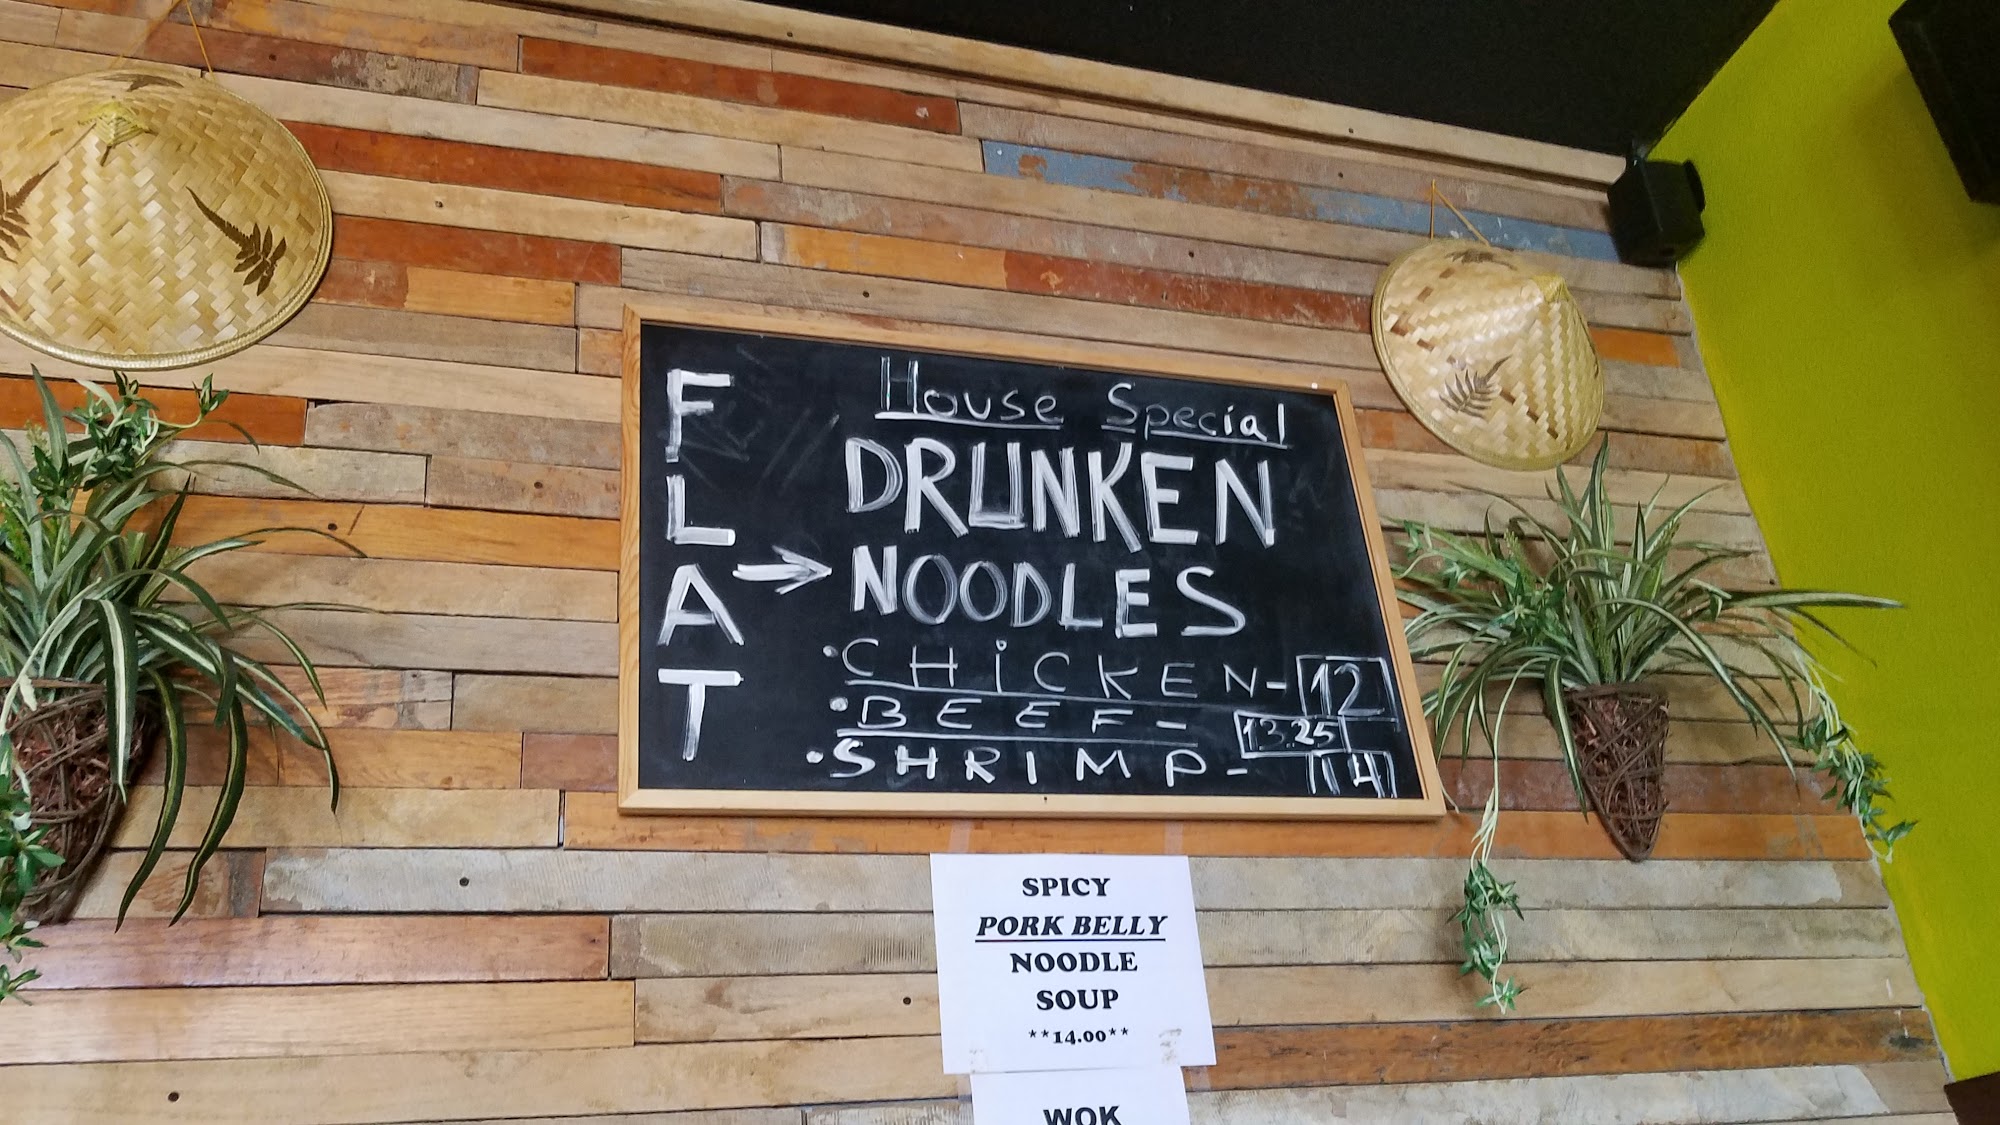 House Special
FLAT → DRUNKEN
NOODLES
• CHiCKEN - 12
• BEEF - 13.25
• SHRIMP - 14
SPICY
PORK BELLY
NOODLE
SOUP
**14.00**
WOK